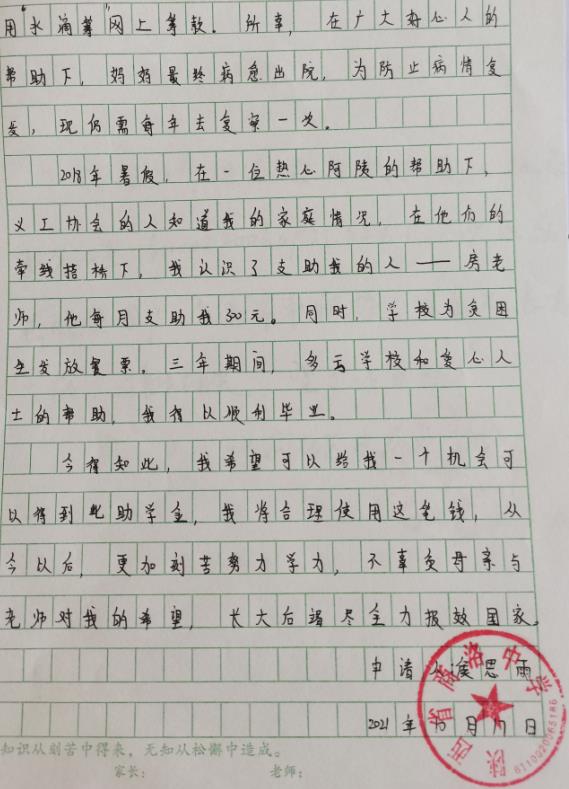 用“水滴筹”网上筹款。所幸，在广大好心人的
帮助下，妈妈最终病愈出院，为防止病情复
发，现仍需每年去复察一次。
2018年暑假，在一位热心阿陵的帮助下，
义工协会的人知道我的家庭情况，在他们的
牵线搭桥下，我认识了支助我的人——房老
师，他每月支助我300元。同时，学校为贫困
生发放餐票。三年期间，多云学校和爱心人
士的帮助，我得以顺利毕业。
今得知此，我希望可以给我一个机会可
以得到此助学金，我将合理使用这笔钱，从
今以后，更加刻苦努力学力，不辜负母亲与
老师对我的希望，长大后竭尽全力报效国家。
申请人侯思雨
2021年10月17日
陕西省商洛中学
6110020065186
知识从刻苦中得来，无知从松懈中造成。
家长： 老师：